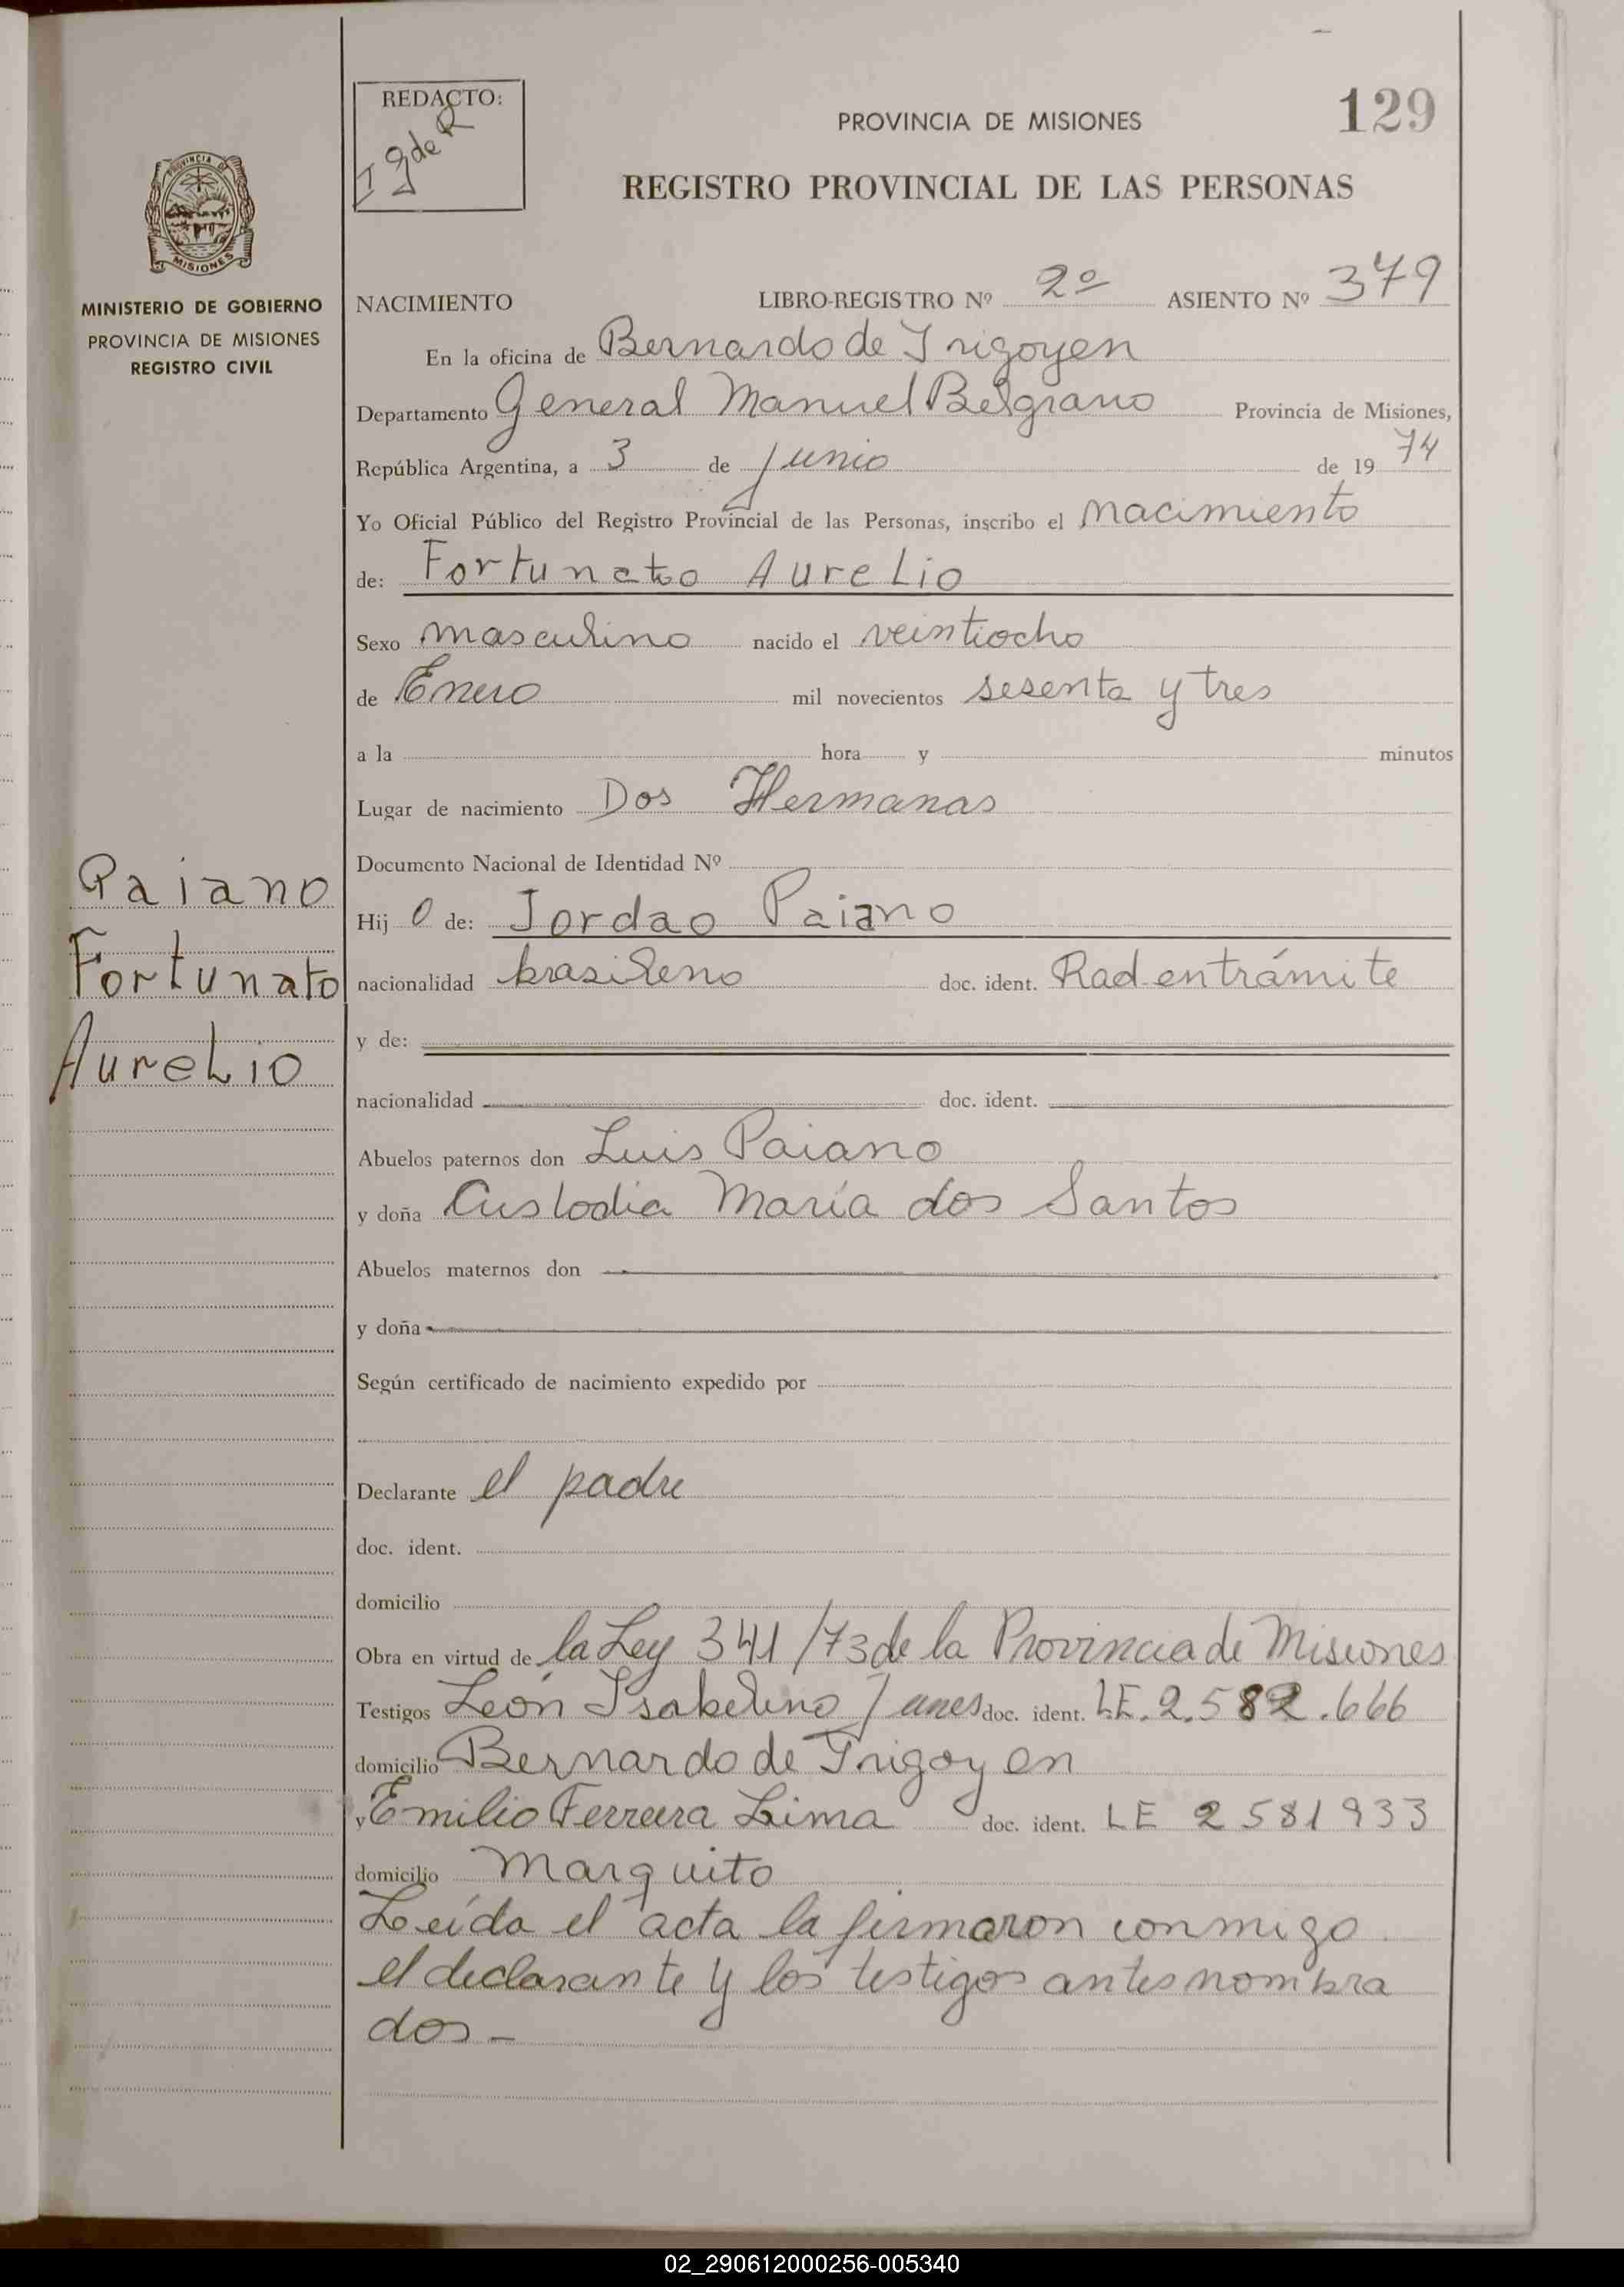 REDACTO:
I g de R
PROVINCIA DE MISIONES
129
REGISTRO PROVINCIAL DE LAS PERSONAS
PROVINCIA DE
MISIONES
MINISTERIO DE GOBIERNO
PROVINCIA DE MISIONES
REGISTRO CIVIL
NACIMIENTO LIBRO-REGISTRO Nº 2º ASIENTO Nº 379
En la oficina de Bernardo de Irigoyen
Departamento General Manuel Belgrano Provincia de Misiones,
República Argentina, a 3 de Junio de 19 74
Yo Oficial Público del Registro Provincial de las Personas, inscribo el nacimiento
de: Fortunato Aurelio
Sexo masculino nacido el veintiocho
de Enero mil novecientos sesenta y tres
a la hora y minutos
Lugar de nacimiento Dos Hermanas
Documento Nacional de Identidad Nº
Paiano
Fortunato
Aurelio
Hij o de: Jordao Paiano
nacionalidad brasileno doc. ident. Rad. en trámite
y de:
nacionalidad doc. ident.
Abuelos paternos don Luis Paiano
y doña Custodia María dos Santos
Abuelos maternos don
y doña
Según certificado de nacimiento expedido por
Declarante el padre
doc. ident.
domicilio
Obra en virtud de la Ley 341/73 de la Provincia de Misiones
Testigos León Isabelino Junes doc. ident. L.E. 2.582.666
domicilio Bernardo de Irigoyen
y Emilio Ferreira Lima doc. ident. LE 2581933
domicilio Marquito
Leída el acta la firmaron conmigo
el declarante y los testigos antes nombra
dos -
02_290612000256-005340